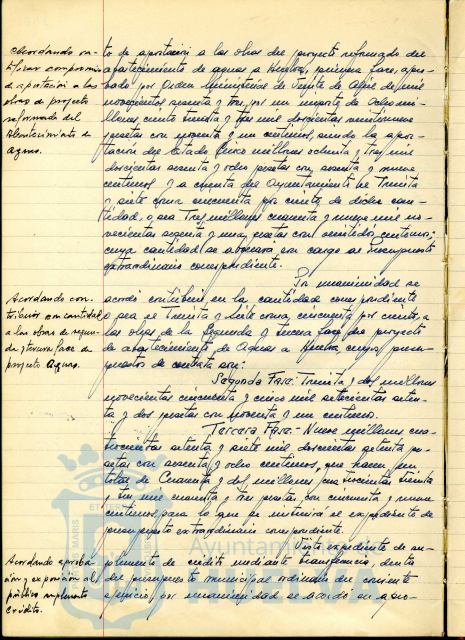 Acordando ra-
tificar compromiso
de aportación a las
obras de proyecto
reformado del
Abastecimiento de
Aguas.
to de aportación a las obras del proyecto reformado del
abastecimiento de aguas a Huelva, primera fase, apro-
bado por Orden Ministerial de Treinta de Abril de mil
novecientos sesenta y tres, por un importe de Ocho mi-
llones, ciento treinta y tres mil doscientas veintinueve
pesetas con noventa y un centimos, siendo la apor-
tación del Estado Cinco millones ochenta y tres mil
doscientas sesenta y ocho pesetas con sesenta y nueve
centimos y a cuenta del Ayuntamiento el Treinta
y siete coma cincuenta por ciento de dicha can-
tidad, o sea Tres millones cuarenta y nueve mil no-
vecientas sesenta y una pesetas con veintidos centimos;
cuya cantidad se abonará con cargo al Presupuesto
extraordinario correspondiente.
Acordando con-
tribuir con cantidad
a las obras de segun-
da y tercera fase de
proyecto Aguas.
Por unanimidad se
acordó contribuir, en la cantidad correspondiente
o sea el Treinta y siete coma, cincuenta por ciento, a
las obras de la Segunda y tercera fase del proyecto
de abastecimiento de Aguas a Huelva cuyos presu-
puestos de contrata son:
Segunda Fase: Treinta y dos millones
novecientas cincuenta y cinco mil setecientas seten-
ta y dos pesetas con noventa y un centimos.
Tercera Fase.- Nueve millones cua-
trocientas setenta y siete mil doscientas setenta pe-
setas con sesenta y ocho centimos, que hacen un
total de Cuarenta y dos millones cuatrocientas treinta
y tres mil cuarenta y tres pesetas, con cincuenta y nueve
centimos, para lo que se iniciará el expediente de
presupuesto extraordinario correspondiente.
Acordando aproba-
ción y exposición al
público suplemento
crédito.
Visto expediente de su-
plemento de crédito mediante transferencia, dentro
del presupuesto municipal ordinario del corriente
ejercicio, por unanimidad se acordó su apro-
Ayuntamiento de
HUELVA